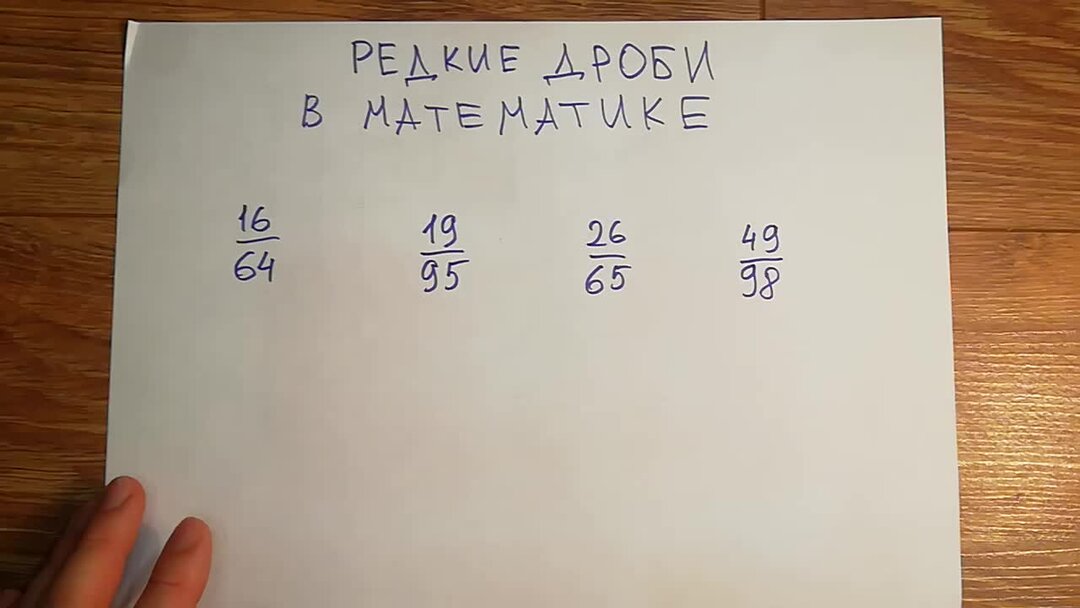 РЕДКИЕ ДРОБИ
В МАТЕМАТИКЕ
16/64 19/95 26/65 49/98